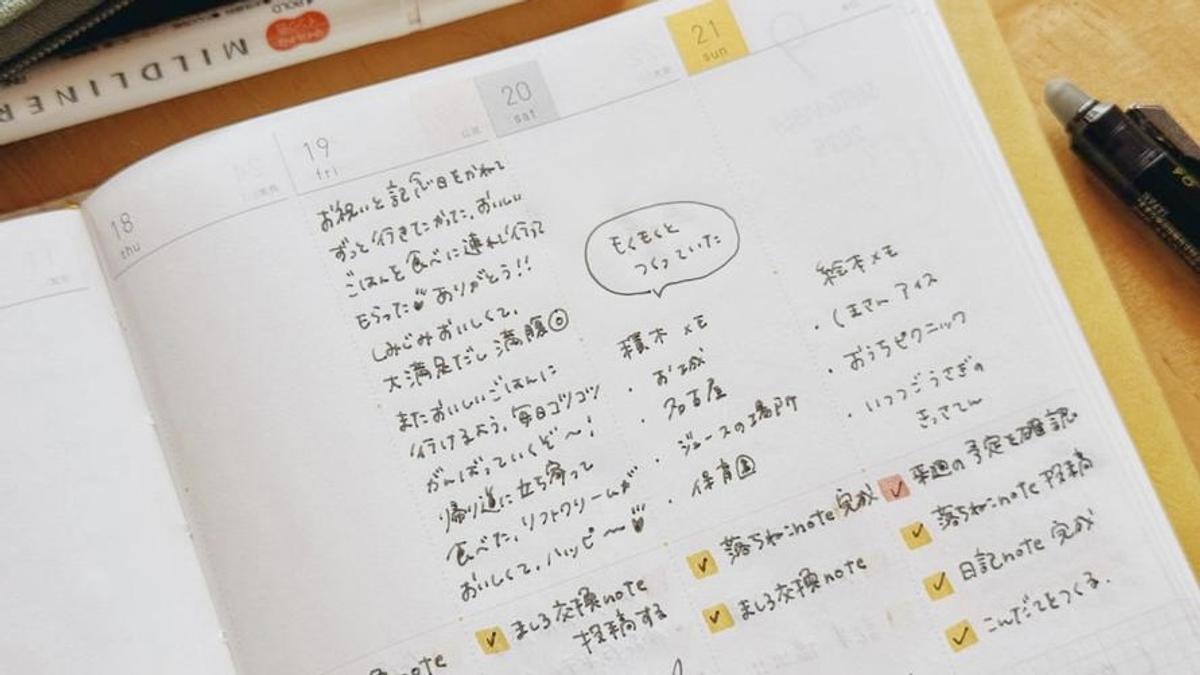 MILDLINER
18
thu
19
fri
お祝いと記念日をかねて
ずっと行きたかった、おいしい
ごはんを食べに連れて行って
もらった ありがとう!!
しみじみおいしくて、
大満足だし満腹
またおいしいごはんに
行けるよう、毎日コツコツ
がんばっていくぞ〜!
帰り道に立ち寄って
食べた、ソフトクリームが
おいしくて、ハッピ〜
ましろ交換note
投稿する
note
20
sat
もくもくと
つくっていた
積木メモ
・お城
・名古屋
・ジュースの場所
・保育園
落ちねこnote 完成
ましろ交換note
21
sun
絵本メモ
・しまさんアイス
・おうちピクニック
・いつつごうさぎの
きっさてん
来週の予定を確認
落ちねこnote 投稿
日記note 完成
こんだてをつくる.